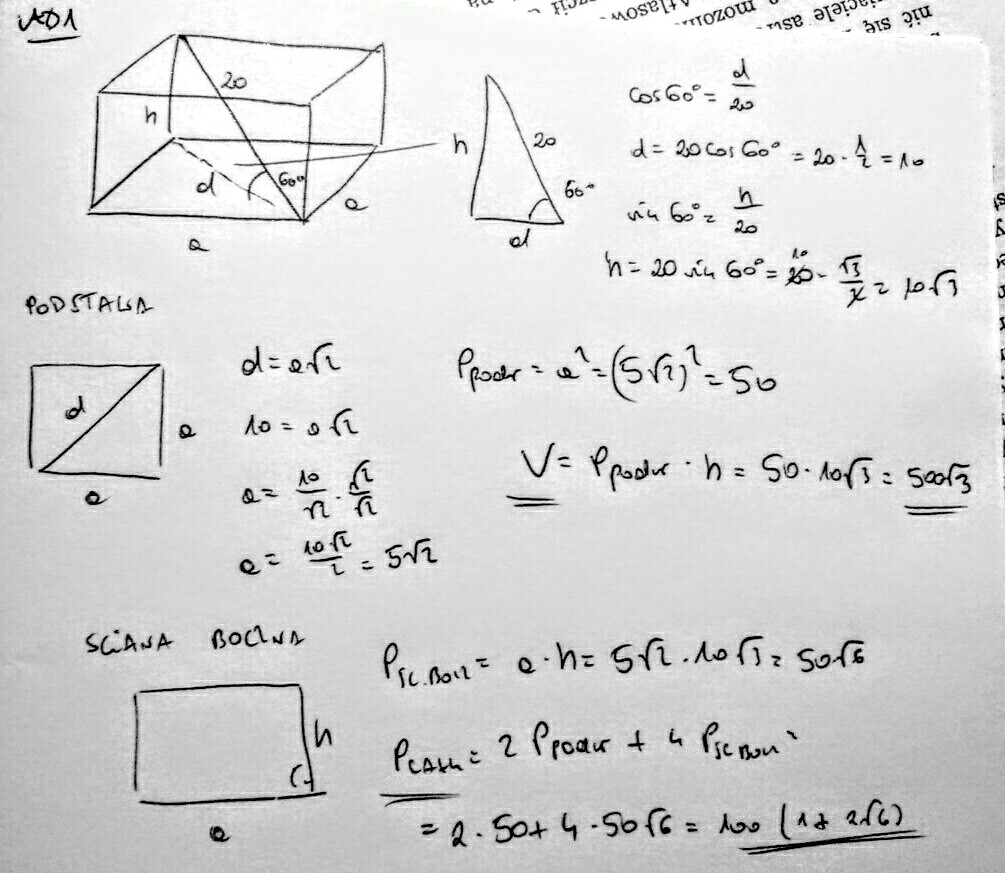 AD1
20
h
d
60°
a
a
h
20
60°
d
cos 60° = d/20
d = 20 cos 60° = 20 · 1/2 = 10
sin 60° = h/20
h = 20 sin 60° = 20 · √3/2 = 10√3
10
PODSTAWA
d
a
a
d = a√2
10 = a√2
a = 10/√2 · √2/√2
a = 10√2/2 = 5√2
Ppodst = a² = (5√2)² = 50
V = Ppodst · h = 50 · 10√3 = 500√3
ŚCIANA BOCZNA
h
a
Pśc.bocz = a · h = 5√2 · 10√3 = 50√6
Pcałk = 2 Ppodst + 4 Pśc bocz =
= 2 · 50 + 4 · 50√6 = 100 (1 + 2√6)
nić się